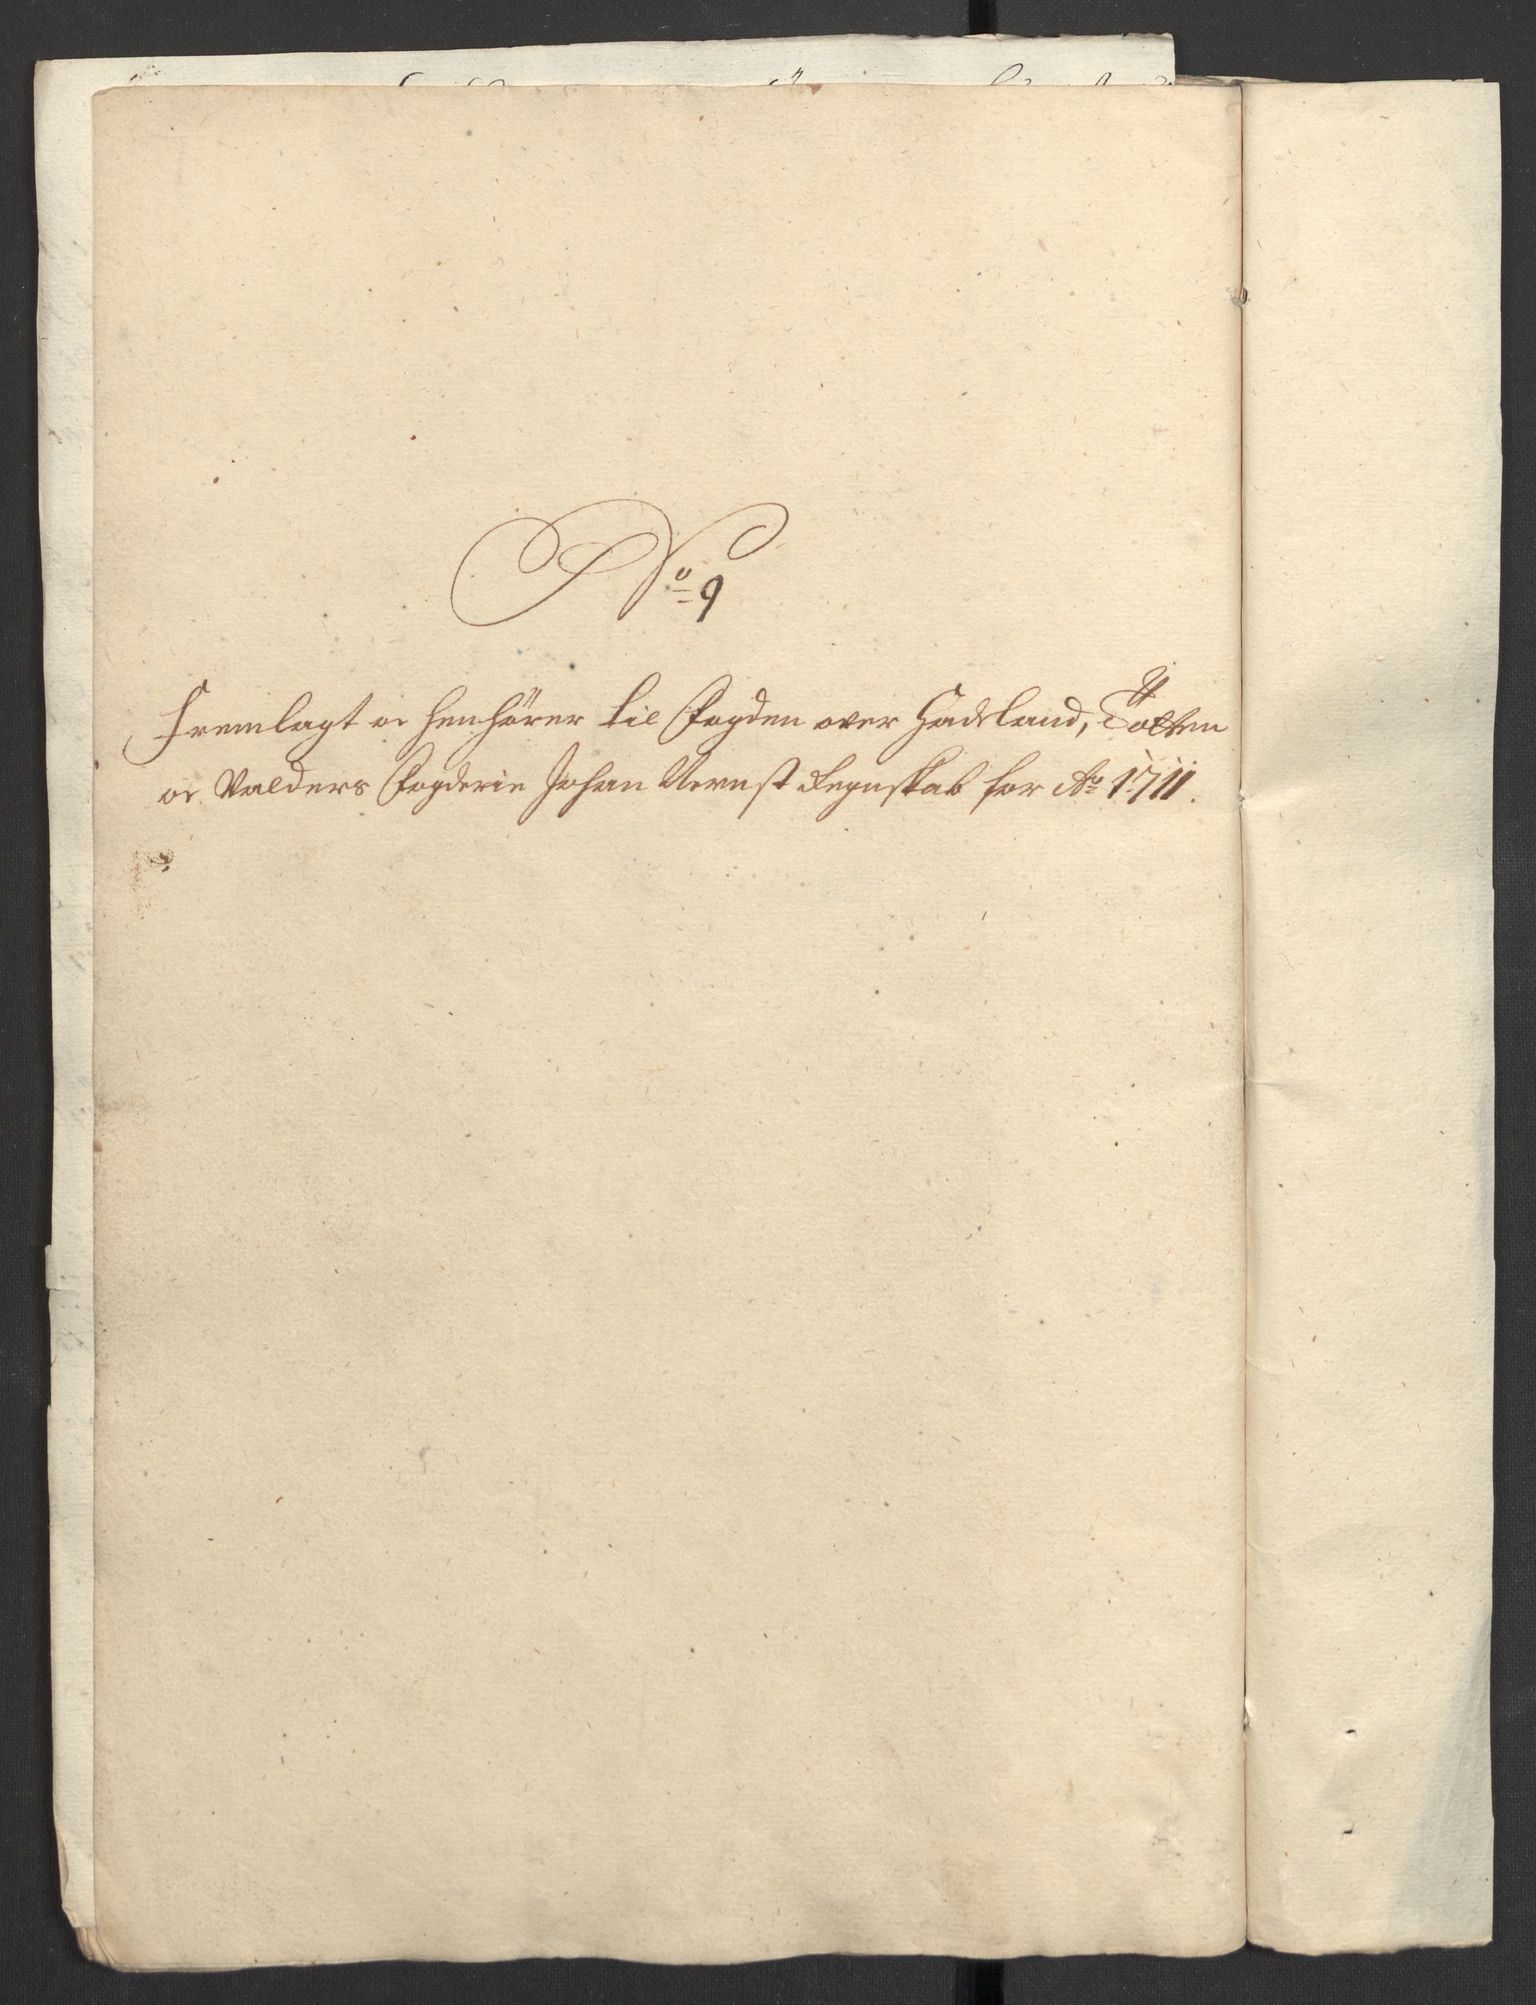 No 9
Fremlagt oc henhörer til Fogden over Hadeland, Totten
oc Valders Fogderie Johan Nernst Regnskab for Ao 1711.